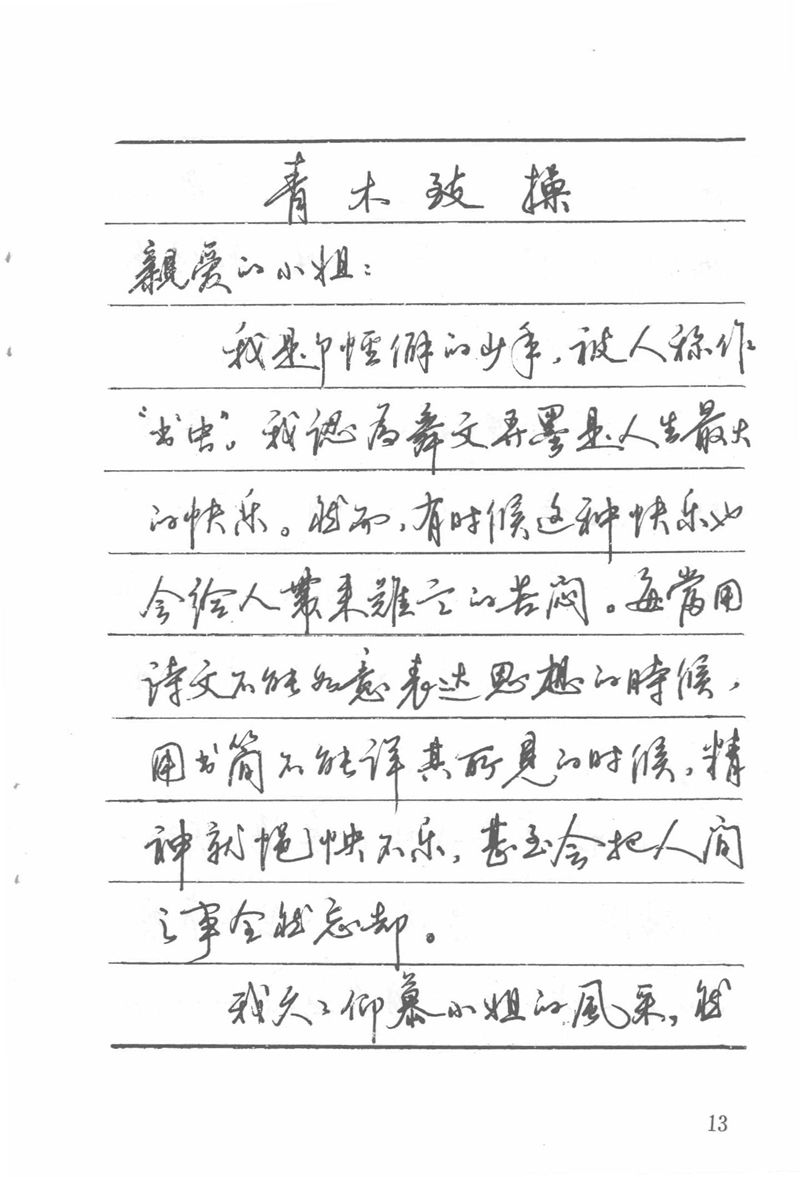 青木致操
親爱的小姐：
我是个怪僻的少年，被人称作
“书虫”。我認为舞文弄墨是人生最大
的快乐。然而，有时候这种快乐也
会给人带来難言的苦闷。每當用
诗文不能如意表达思想的時候，
用书简不能详其所見的时候，精
神就悒怏不乐，甚至会把人间
之事全然忘却。
我久久仰慕小姐的風采，然
13